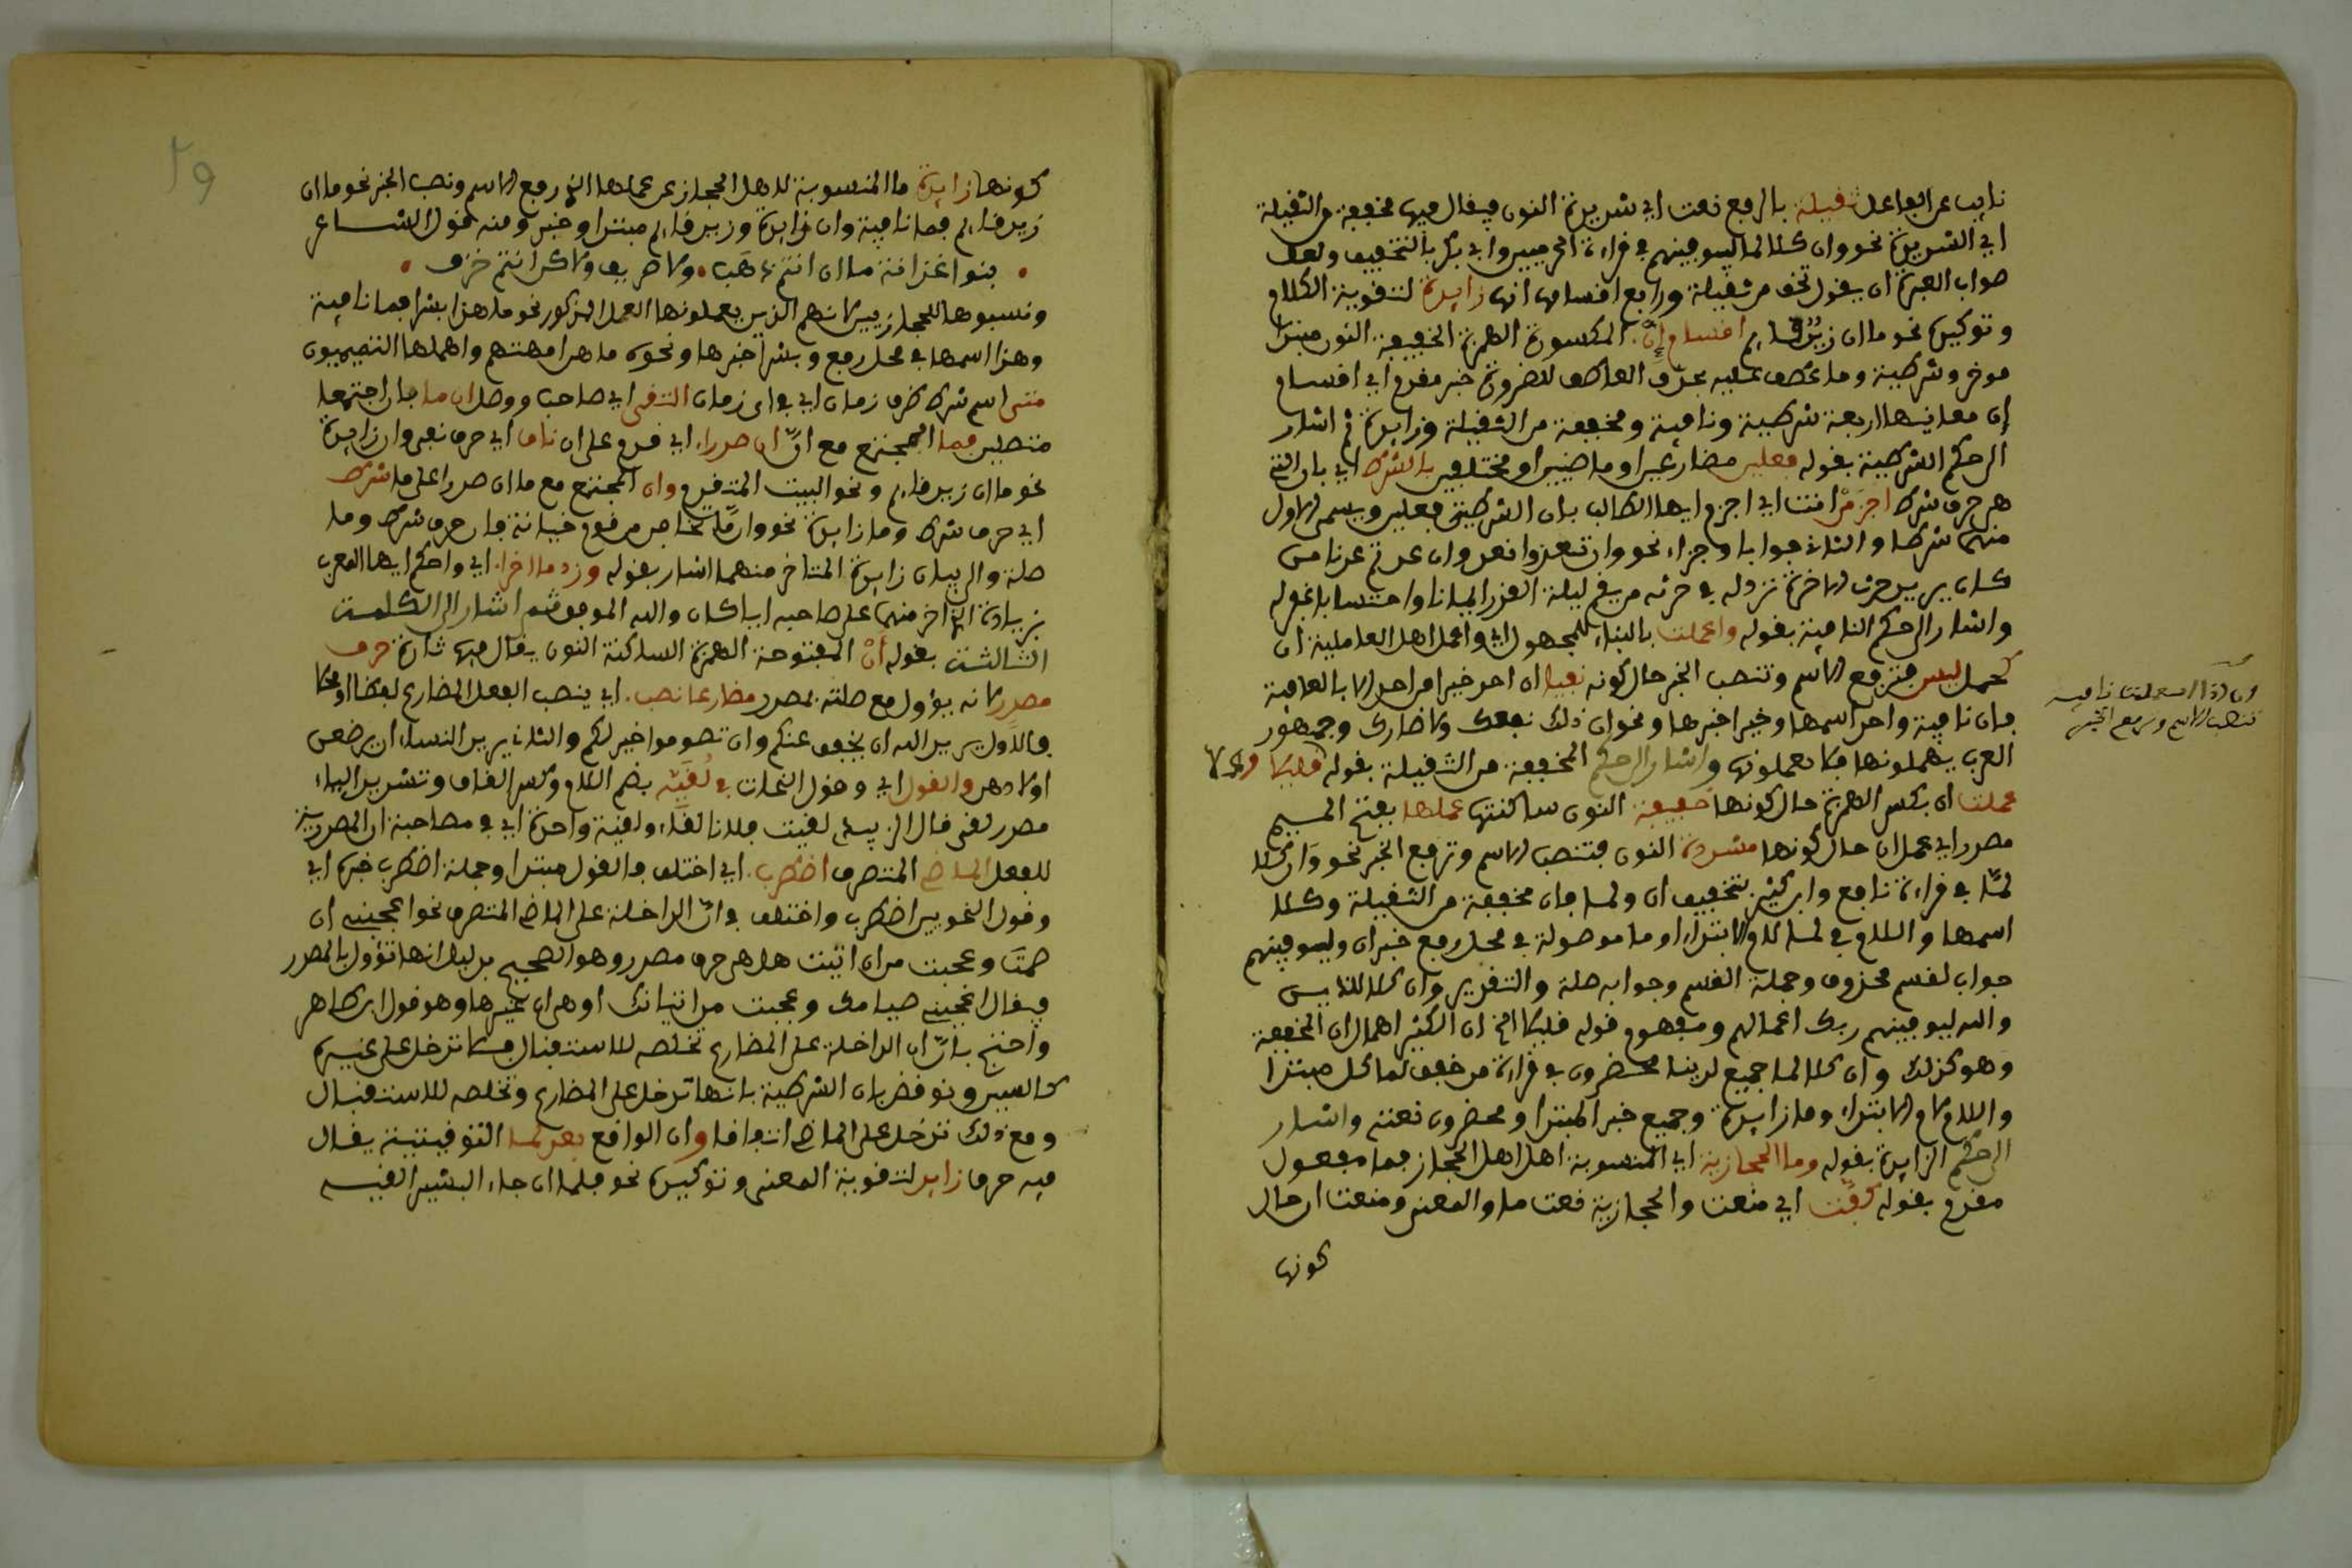 نايب عن الفاعل ثقيلة بالرفع نعت اي شديدة النون فيقال فيها مخففة من الثقيلة
اي الشديدة نحو وان كلا لما ليوفينهم في قراءة الحرميين وابي بكر بالتخفيف ولعل
صواب العبارة ان يقول تخف من ثقيلة ورابع اقسامها انها زايدة لتقوية الكلام
وتوكيده نحو ما ان زيد قايم اقسام إن المكسورة الهمزة الخفيفة النون مبتدا
موخر وشرطية وما عطف عليه بحذف العاطف للضرورة خبر مقدم اي اقسام
إن معانيها اربعة شرطية ونافية ومخففة من الثقيلة وزايدة ثم اشار
الى حكم الشرطية بقوله فعلين مضارعين او ماضيين او مختلفين بالشرط اي بان التي
هي حرف شرط اجزم انت اي اجزم ايها الطالب بان الشرطية فعلين ويسمى الاول
منهما شرطا والثاني جوابا وجزاء نحو وان تعودوا نعد وان عدتم عدنا من
كان يريد حرث الاخرة نزد له في حرثه من يقم ليلة القدر ايمانا واحتسابا غفر له
واشار الى حكم النافية بقوله واعملت بالبناء للمجهول اي واعمل اهل العالية ان
كعمل ليس فترفع الاسم وتنصب الخبر حال كونه نفيا ان احد خيرا من احد الا بالعافية
فان نافية واحد اسمها وخيرا خبرها ونحو ان ذلك نفعك ولا ضارك وجمهور
العرب يهملونها فلا يعملونها واشار الى حكم المخففة من الثقيلة بقوله قليلا
عملت ان بكسر الهمزة حال كونها خفيفة النون ساكنتها عملها بفتح الميم
مصدر اي عمل ان حال كونها مشددة النون فتنصب الاسم وترفع الخبر نحو وان كلا
لما في قراءة نافع وابن كثير بتخفيف ان ولما فان مخففة من الثقيلة وكلا
اسمها واللام في لما لام الابتداء او ما موصولة في محل رفع خبر ان وليوفينهم
جواب لقسم محذوف وجملة القسم وجوابه صلة والتقدير وان كلا للذين
والله ليوفينهم ربك اعمالهم ومفهوم قوله قليلا الخ ان الكثير اهمال ان المخففة
وهو كذلك وان كل لما جميع لدينا محضرون في قراءة من خفف لما كل مبتدا
واللام لام الابتداء وما زايدة وجميع خبر المبتدا ومحضرون نعته واشار
الى حكم الزايدة بقوله وما الحجازية اي المنسوبة لاهل الحجاز فما مفعول
مقدم بقوله كفت اي منعت والحجازية نعت ما والمعنى ومنعت ان حال
كونها
ان اذا استعملت نافية
تنصب الاسم وترفع الخبر
٢٩
كونها زايدة ما المنسوبة لاهل الحجاز عن عملها الذي رفع الاسم ونصب الخبر نحو ما ان
زيد قايم فما نافية وان زايدة وزيد قايم مبتدا وخبر ومنه قول الشاعر
بنو اغدانة ما ان انتم ذهب ولا صريف ولاكن انتم خزف
ونسبوها للحجازيين لانهم الذين يعملونها العمل المذكور نحو ما هذا بشرا فما نافية
وهذا اسمها في محل رفع وبشرا خبرها ونحوه ما هن امهتهم واهملها التميميون
متى اسم شرط ظرف زمان اي في اي زمان التقى اي صاحب ووصل ان ما بان اجتمعا
متصلين فما المجتمع مع ان ان صدرا اي قدم على ان ناف اي حرف نفي وان زايدة
نحو ما ان زيد قايم ونحو البيت المتقدم وان المجتمع مع ما ان صدرا على ما شرط
اي حرف شرط وما زايدة نحو واما تخافن من قوم خيانة فان حرف شرط وما
صلة والى بيان زايدة المتاخر منهما اشار بقوله وزد ما اخرا اي واحكم ايها المعرب
بزيادة الذي اخر منهما على صاحبه ايا كان والله الموفق ثم اشار الى الكلمة
الثالثة بقوله أن المفتوحة الهمزة الساكنة النون يقال فيها تارة حرف
مصدر لانه يؤول مع صلته بمصدر مضارعا نصب اي ينصب الفعل المضارع لفظا او محلا
فالاول يريد الله ان يخفف عنكم وان تصوموا خير لكم والثاني يريد النساء ان يرضعن
اولادهن والقول اي وقول النحات في لقيه بضم اللام وكسر القاف وتشديد الياء
مصدر لقي قال لقيت فلانا لقاء ولقية واحدة اي في مصاحبة ان المصدرية
للفعل الماضي المتصرف اضطرب اي اختلف فالقول مبتدا وجملة اضطرب خبره اي
وقول النحويين اضطرب واختلف في ان الداخلة على الماضي المتصرف نحو اعجبني ان
صمت وعجبت من ان اتيت هل هي حرف مصدر وهو الصحيح بدليل انها تؤول بالمصدر
فيقال اعجبني صيامك وعجبت من اتيانك او هي ان غيرها وهو قول ابن طاهر
واحتج بان ان الداخلة على المضارع تخلصه للاستقبال فلا تدخل على غيره
كالسين ونوقض بان الشرطية بانها تدخل على المضارع وتخلصه للاستقبال
ومع ذلك تدخل على الماضي اتفاقا وان الواقع بعد لما التوقيتية يقال
فيه حرف زايد لتقوية المعنى وتوكيده نحو فلما ان جاء البشير القيه